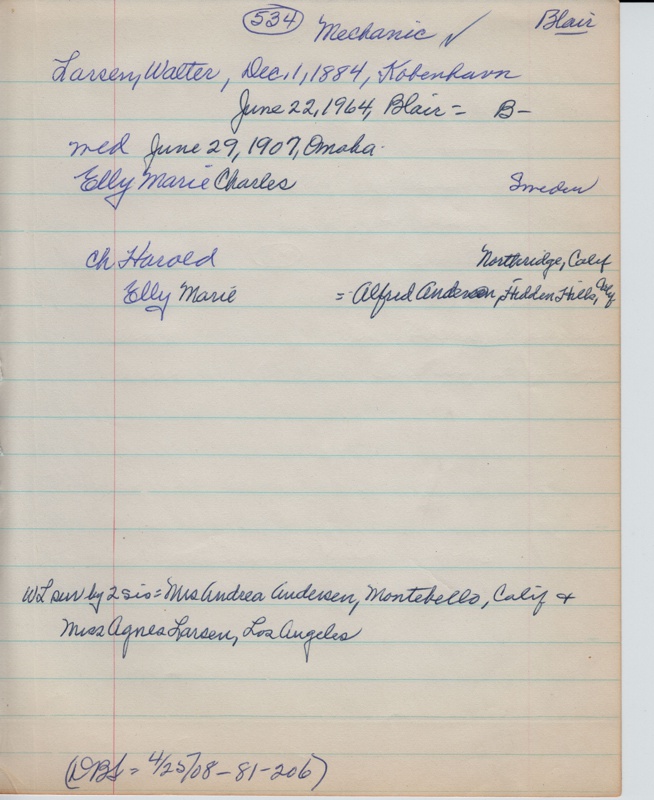 534 Mechanic ✓ Blair
Larsen, Walter, Dec. 1, 1884, Kobenhavn
June 22, 1964, Blair = B-
med June 29, 1907, Omaha.
Elly Marie Charles Sweden
ch Harold Northridge, Calif
Elly Marie = Alfred Andersen, Hidden Hills,
WL surv by 2 sis = Mrs Andrea Andersen, Montebello, Calif +
Miss Agnes Larsen, Los Angeles
(DBL = 4/25/08-81-206)